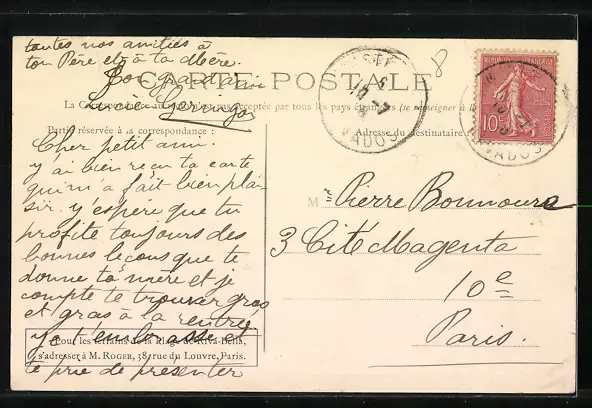 toutes nos amitiés à
ton Père et à ta Mère.
Ton grand ami
CARTE POSTALE
La Correspondance pas acceptée par tous les pays étrangers (se renseigner à
Partie réservée à la correspondance :
Adresse du destinataire
Cher petit ami.
y'ai bien reçu ta carte
qui m'a fait bien plai-
sir. y'espère que tu
profite toujours des
bonnes leçons que te
donne ta mère et je
compte te trouver gros
et gras à la rentrée
y't'embrasse et
te prie de présenter
Pour les terrains de la Plage de Riva-Bella,
s'adresser à M. ROGER, 38, rue du Louvre, Paris.
8
REPUBLIQUE FRANÇAISE
10c
VADOS
VADOS
M Pierre Bonnoure
3 Cité Magenta
10e
Paris.